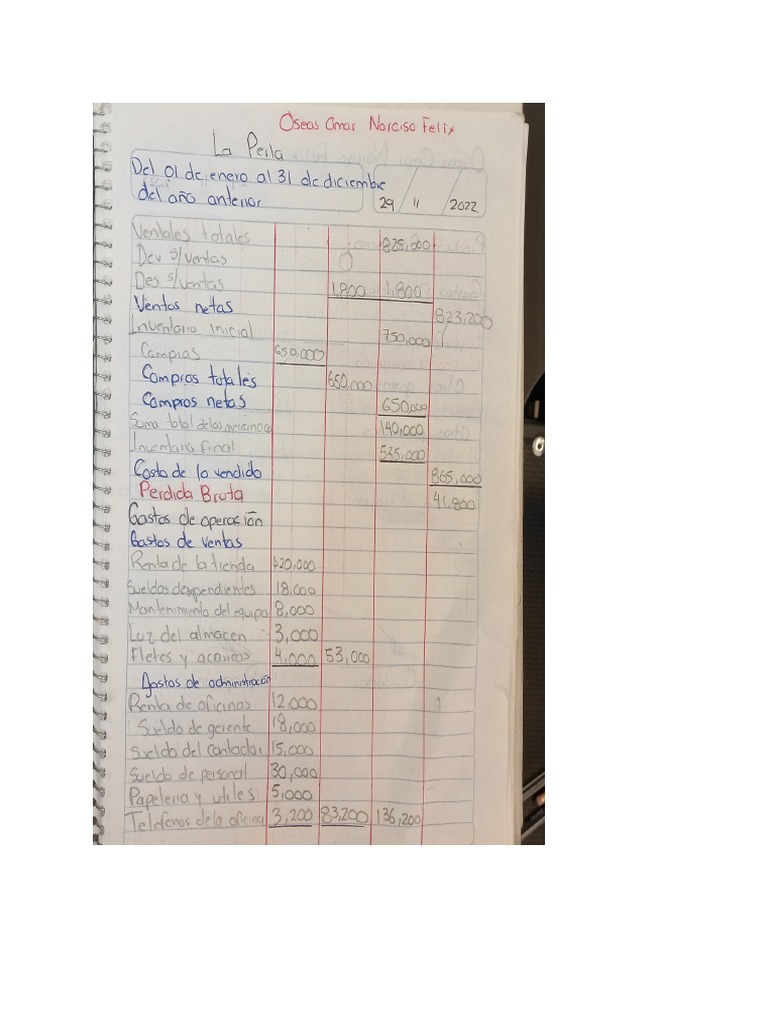 Oseas Omar Narciso Felix
La Perla
Del 01 de enero al 31 de diciembre
del año anterior
29 / 11 / 2022
Ventales totales 825,000
Dev s/ventas 0
Des s/ventas 1,800 1,800
Ventas netas 823,200
Inventario inicial 750,000
Compras 650,000
Compras totales 650,000
Compras netas 650,000
Suma total de las mercancias 140,000
Inventario final 535,000
Costo de lo vendido 865,000
Perdida Bruta 41,800
Gastos de operación
Gastos de ventas
Renta de la tienda $20,000
Sueldos dependientes 18,000
Mantenimiento del equipo 8,000
Luz del almacen 3,000
Fletes y acarreos 4,000 53,000
Gastos de administración
Renta de oficinas 12,000
Sueldo de gerente 18,000
Sueldo del contador 15,000
Sueldo de personal 30,000
Papeleria y utiles 5,000
Telefonos de la oficina 3,200 83,200 136,200